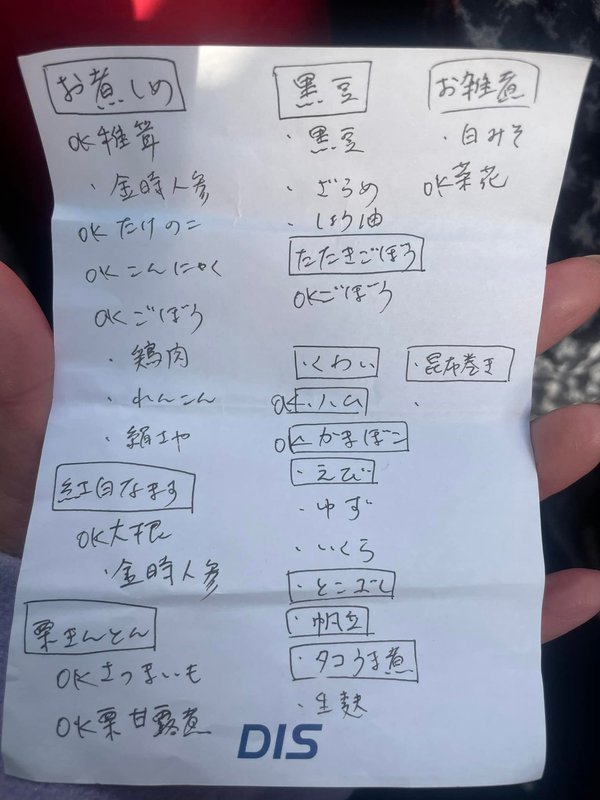 お煮しめ
OK 椎茸
・金時人参
OK たけのこ
OK こんにゃく
OK ごぼう
・鶏肉
・れんこん
・絹さや
紅白なます
OK 大根
・金時人参
栗きんとん
OK さつまいも
OK 栗甘露煮
黒豆
・黒豆
・ざらめ
・しょう油
たたきごぼう
OK ごぼう
・くわい
OK・ハム
OK かまぼこ
・えび
・ゆず
・いくら
・とこぶし
・帆立
・タコうま煮
・生麩
お雑煮
・白みそ
OK 菜花
・昆布巻き
・
DIS